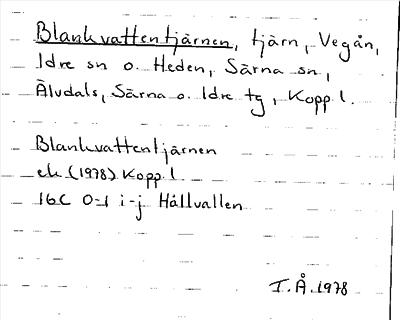 Blankvattentjärnen, tjärn, Vegån,
Idre sn o. Heden, Särna sn,
Älvdals, Särna o. Idre tg, Kopp l.
Blankvattentjärnen
ek (1978) Kopp l
16C 0-1 i-j Hållvallen
T.Å. 1978